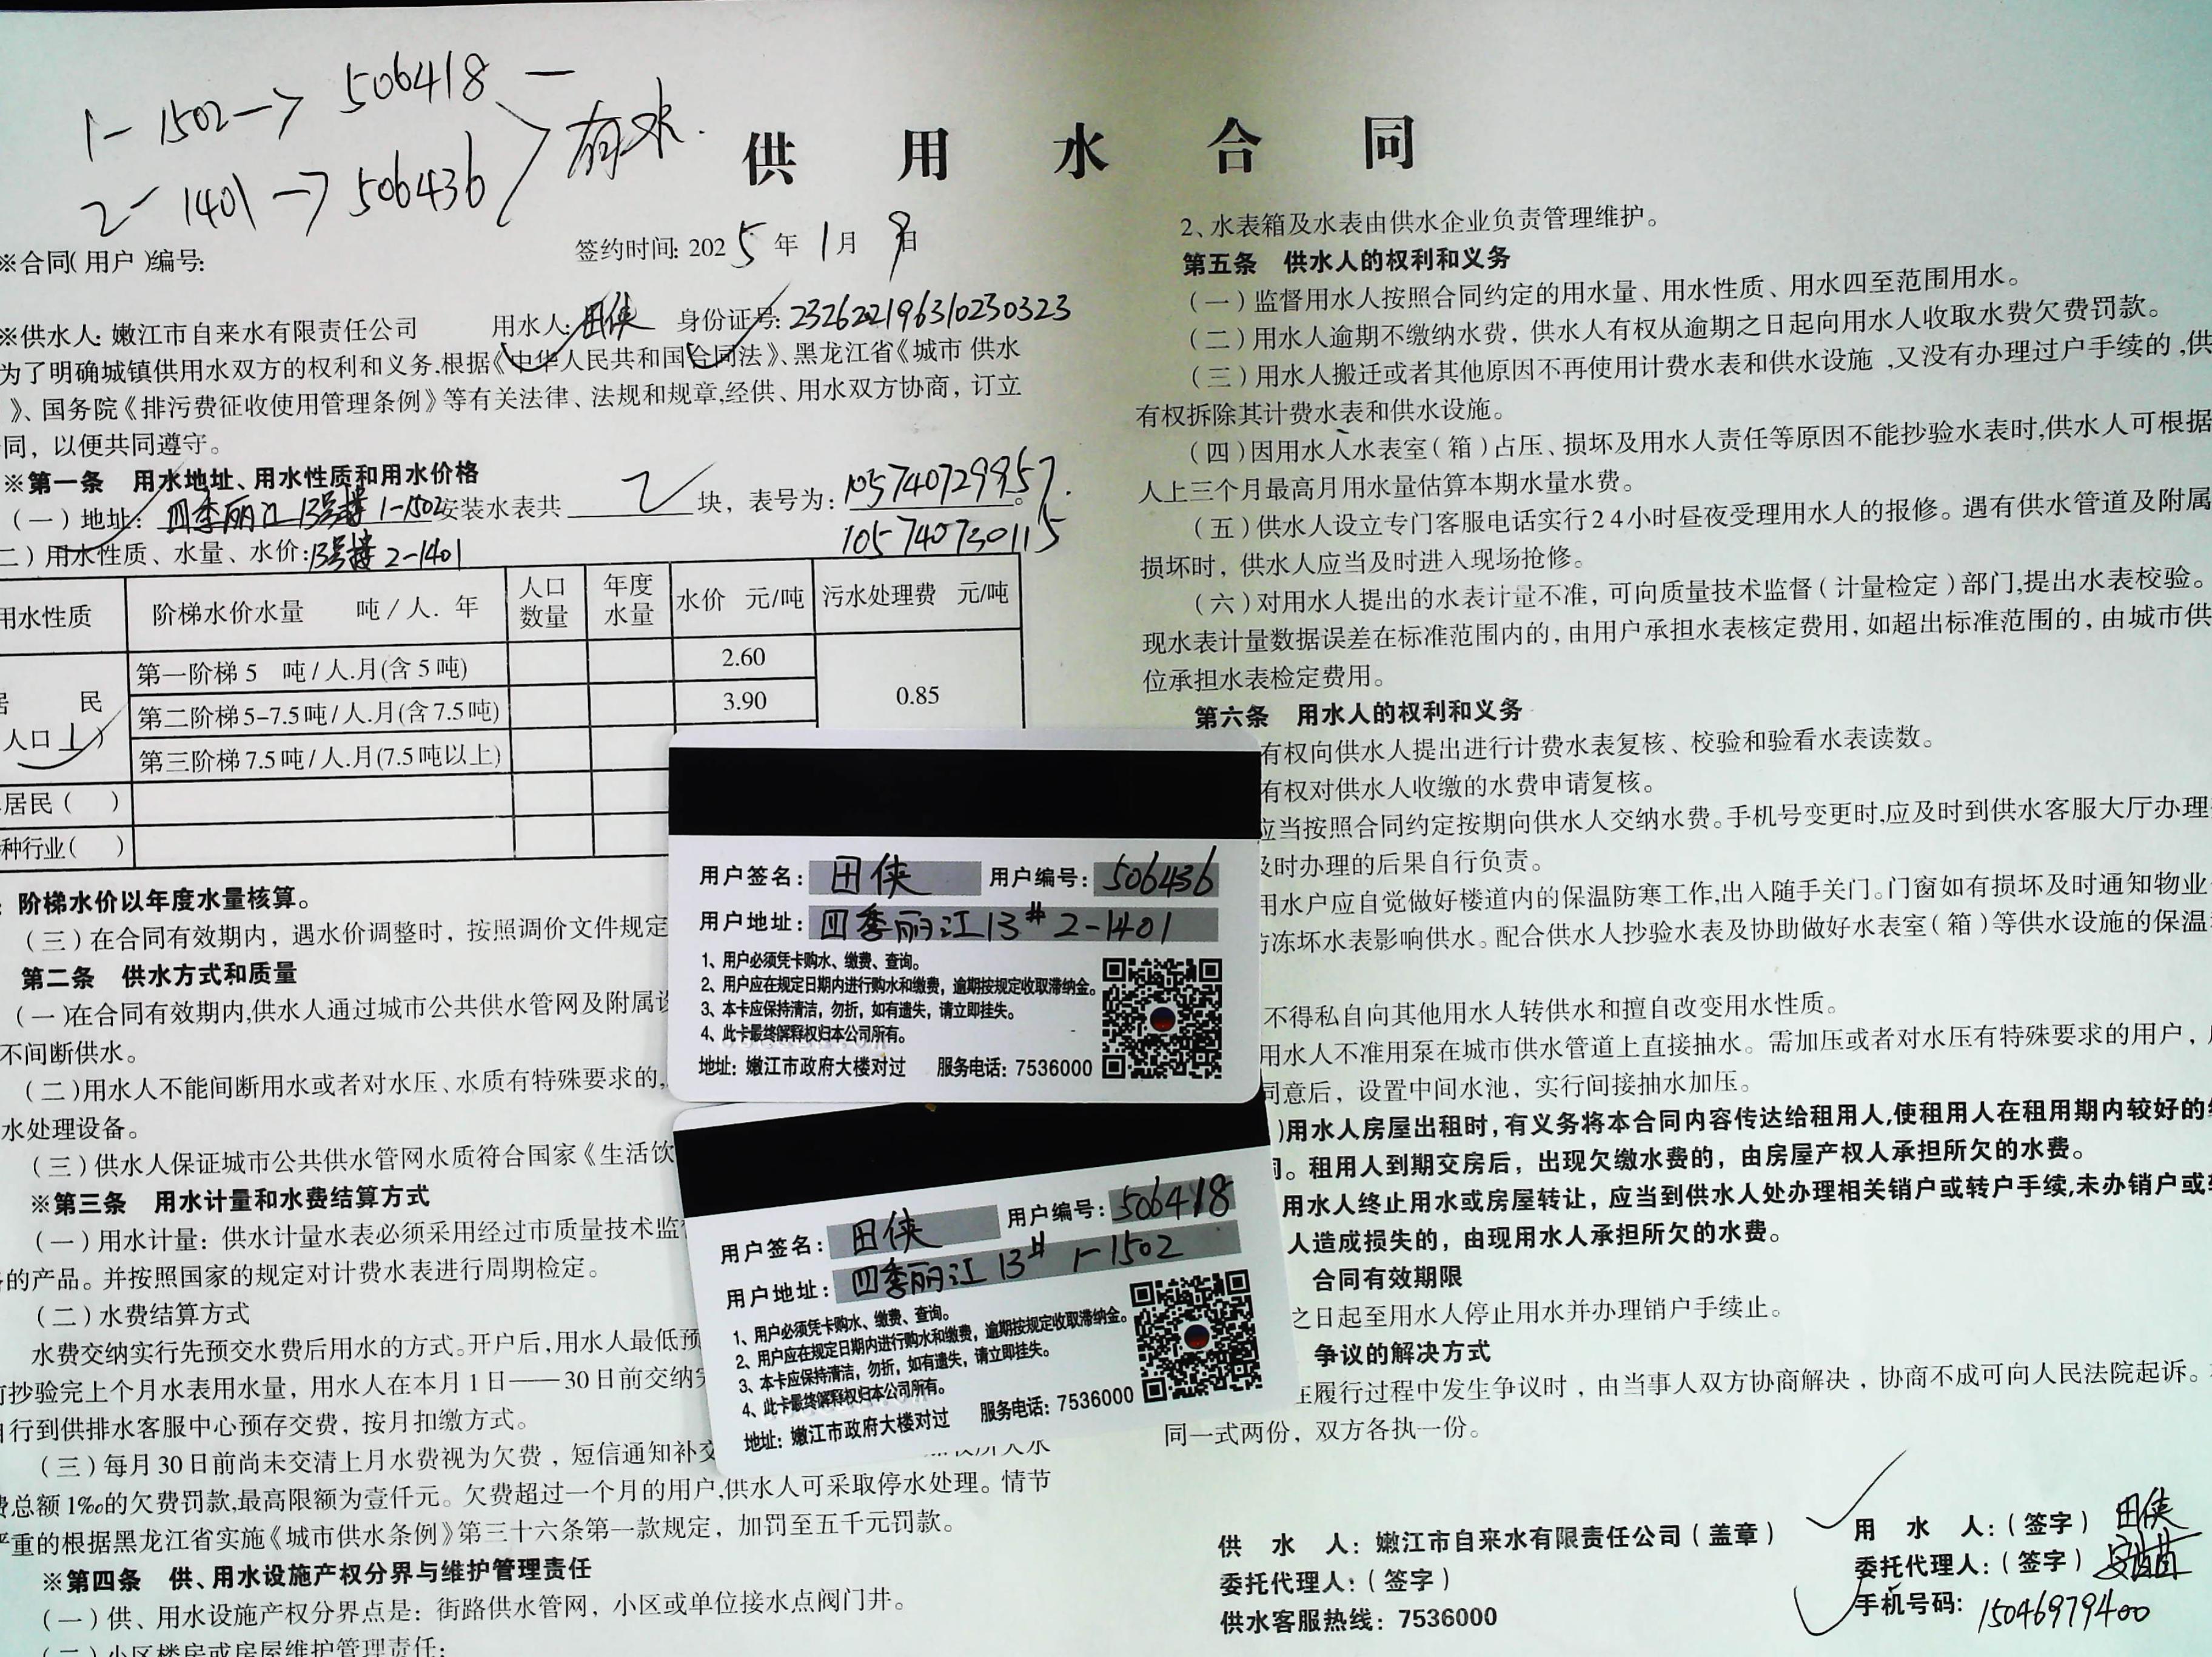 1- 1502 —> 506418 —
2- 1401 —> 506436
有水.
供 用 水 合 同
※合同(用户)编号:
签约时间: 2025年1月9日
※供水人: 嫩江市自来水有限责任公司 用水人: 田侠 身份证号: 232622196310230323
为了明确城镇供用水双方的权利和义务.根据《中华人民共和国合同法》、黑龙江省《城市 供水
》、国务院《排污费征收使用管理条例》等有关法律、法规和规章,经供、用水双方协商，订立
同，以便共同遵守。
※第一条 用水地址、用水性质和用水价格
(一)地址: 四季丽江 13号楼 1-1502 安装水表共 2 块，表号为: 105740729957.
105740730115
二)用水性质、水量、水价: 13号楼 2-1401
用水性质 阶梯水价水量 吨/人.年 人口数量 年度水量 水价 元/吨 污水处理费 元/吨
居 民
人口 1 )
第一阶梯 5 吨/人.月(含 5 吨) 2.60
第二阶梯 5-7.5吨/人.月(含 7.5吨) 3.90 0.85
第三阶梯 7.5吨/人.月(7.5吨以上)
居民( )
种行业( )
阶梯水价以年度水量核算。
(三)在合同有效期内，遇水价调整时，按照调价文件规定
第二条 供水方式和质量
(一)在合同有效期内,供水人通过城市公共供水管网及附属设
不间断供水。
(二)用水人不能间断用水或者对水压、水质有特殊要求的,
水处理设备。
(三)供水人保证城市公共供水管网水质符合国家《生活饮
※第三条 用水计量和水费结算方式
(一)用水计量：供水计量水表必须采用经过市质量技术监督
的产品。并按照国家的规定对计费水表进行周期检定。
(二)水费结算方式
水费交纳实行先预交水费后用水的方式。开户后,用水人最低预
前抄验完上个月水表用水量，用水人在本月1日——30日前交纳完
自行到供排水客服中心预存交费，按月扣缴方式。
(三)每月30日前尚未交清上月水费视为欠费，短信通知补交
费总额1‰的欠费罚款,最高限额为壹仟元。欠费超过一个月的用户,供水人可采取停水处理。情节
严重的根据黑龙江省实施《城市供水条例》第三十六条第一款规定，加罚至五千元罚款。
※第四条 供、用水设施产权分界与维护管理责任
(一)供、用水设施产权分界点是：街路供水管网，小区或单位接水点阀门井。
(二)小区楼房或房屋维护管理责任:
2、水表箱及水表由供水企业负责管理维护。
第五条 供水人的权利和义务
(一)监督用水人按照合同约定的用水量、用水性质、用水四至范围用水。
(二)用水人逾期不缴纳水费，供水人有权从逾期之日起向用水人收取水费欠费罚款。
(三)用水人搬迁或者其他原因不再使用计费水表和供水设施,又没有办理过户手续的,供
有权拆除其计费水表和供水设施。
(四)因用水人水表室(箱)占压、损坏及用水人责任等原因不能抄验水表时,供水人可根据
人上三个月最高月用水量估算本期水量水费。
(五)供水人设立专门客服电话实行24小时昼夜受理用水人的报修。遇有供水管道及附属
损坏时，供水人应当及时进入现场抢修。
(六)对用水人提出的水表计量不准，可向质量技术监督(计量检定)部门,提出水表校验。
现水表计量数据误差在标准范围内的，由用户承担水表核定费用，如超出标准范围的，由城市供
位承担水表检定费用。
第六条 用水人的权利和义务
有权向供水人提出进行计费水表复核、校验和验看水表读数。
有权对供水人收缴的水费申请复核。
应当按照合同约定按期向供水人交纳水费。手机号变更时,应及时到供水客服大厅办理
及时办理的后果自行负责。
用水户应自觉做好楼道内的保温防寒工作,出入随手关门。门窗如有损坏及时通知物业
防冻坏水表影响供水。配合供水人抄验水表及协助做好水表室(箱)等供水设施的保温
不得私自向其他用水人转供水和擅自改变用水性质。
用水人不准用泵在城市供水管道上直接抽水。需加压或者对水压有特殊要求的用户，
同意后，设置中间水池，实行间接抽水加压。
)用水人房屋出租时,有义务将本合同内容传达给租用人,使租用人在租用期内较好的
同。租用人到期交房后，出现欠缴水费的，由房屋产权人承担所欠的水费。
用水人终止用水或房屋转让，应当到供水人处办理相关销户或转户手续,未办销户或
人造成损失的，由现用水人承担所欠的水费。
合同有效期限
之日起至用水人停止用水并办理销户手续止。
争议的解决方式
在履行过程中发生争议时，由当事人双方协商解决，协商不成可向人民法院起诉。
同一式两份，双方各执一份。
供 水 人：嫩江市自来水有限责任公司(盖章)
委托代理人:(签字)
供水客服热线：7536000
用 水 人:(签字) 田侠
委托代理人:(签字)
手机号码: 15046979400
用户签名: 田侠 用户编号: 506436
用户地址: 四季丽江13# 2-1401
1、用户必须凭卡购水、缴费、查询。
2、用户应在规定日期内进行购水和缴费，逾期按规定收取滞纳金。
3、本卡应保持清洁，勿折，如有遗失，请立即挂失。
4、此卡最终解释权归本公司所有。
地址：嫩江市政府大楼对过 服务电话：7536000
用户签名: 田侠 用户编号: 506418
用户地址: 四季丽江 13# 1-1502
1、用户必须凭卡购水、缴费、查询。
2、用户应在规定日期内进行购水和缴费，逾期按规定收取滞纳金。
3、本卡应保持清洁，勿折，如有遗失，请立即挂失。
4、此卡最终解释权归本公司所有。
地址：嫩江市政府大楼对过 服务电话：7536000